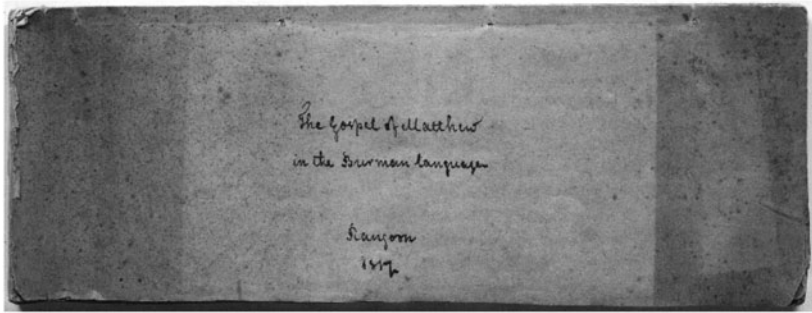 The Gospel of Matthew
in the Burman language
Rangoon
1817